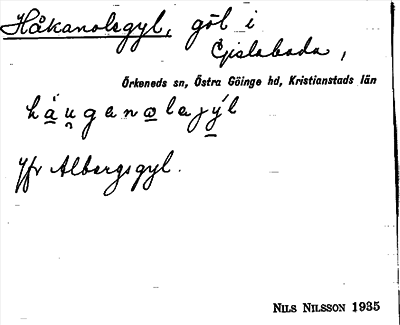 Håkanolsgyl, göl i
Gislaboda,
Örkeneds sn, Östra Göinge hd, Kristianstads län
Jfr Albergsgyl.
NILS NILSSON 1935